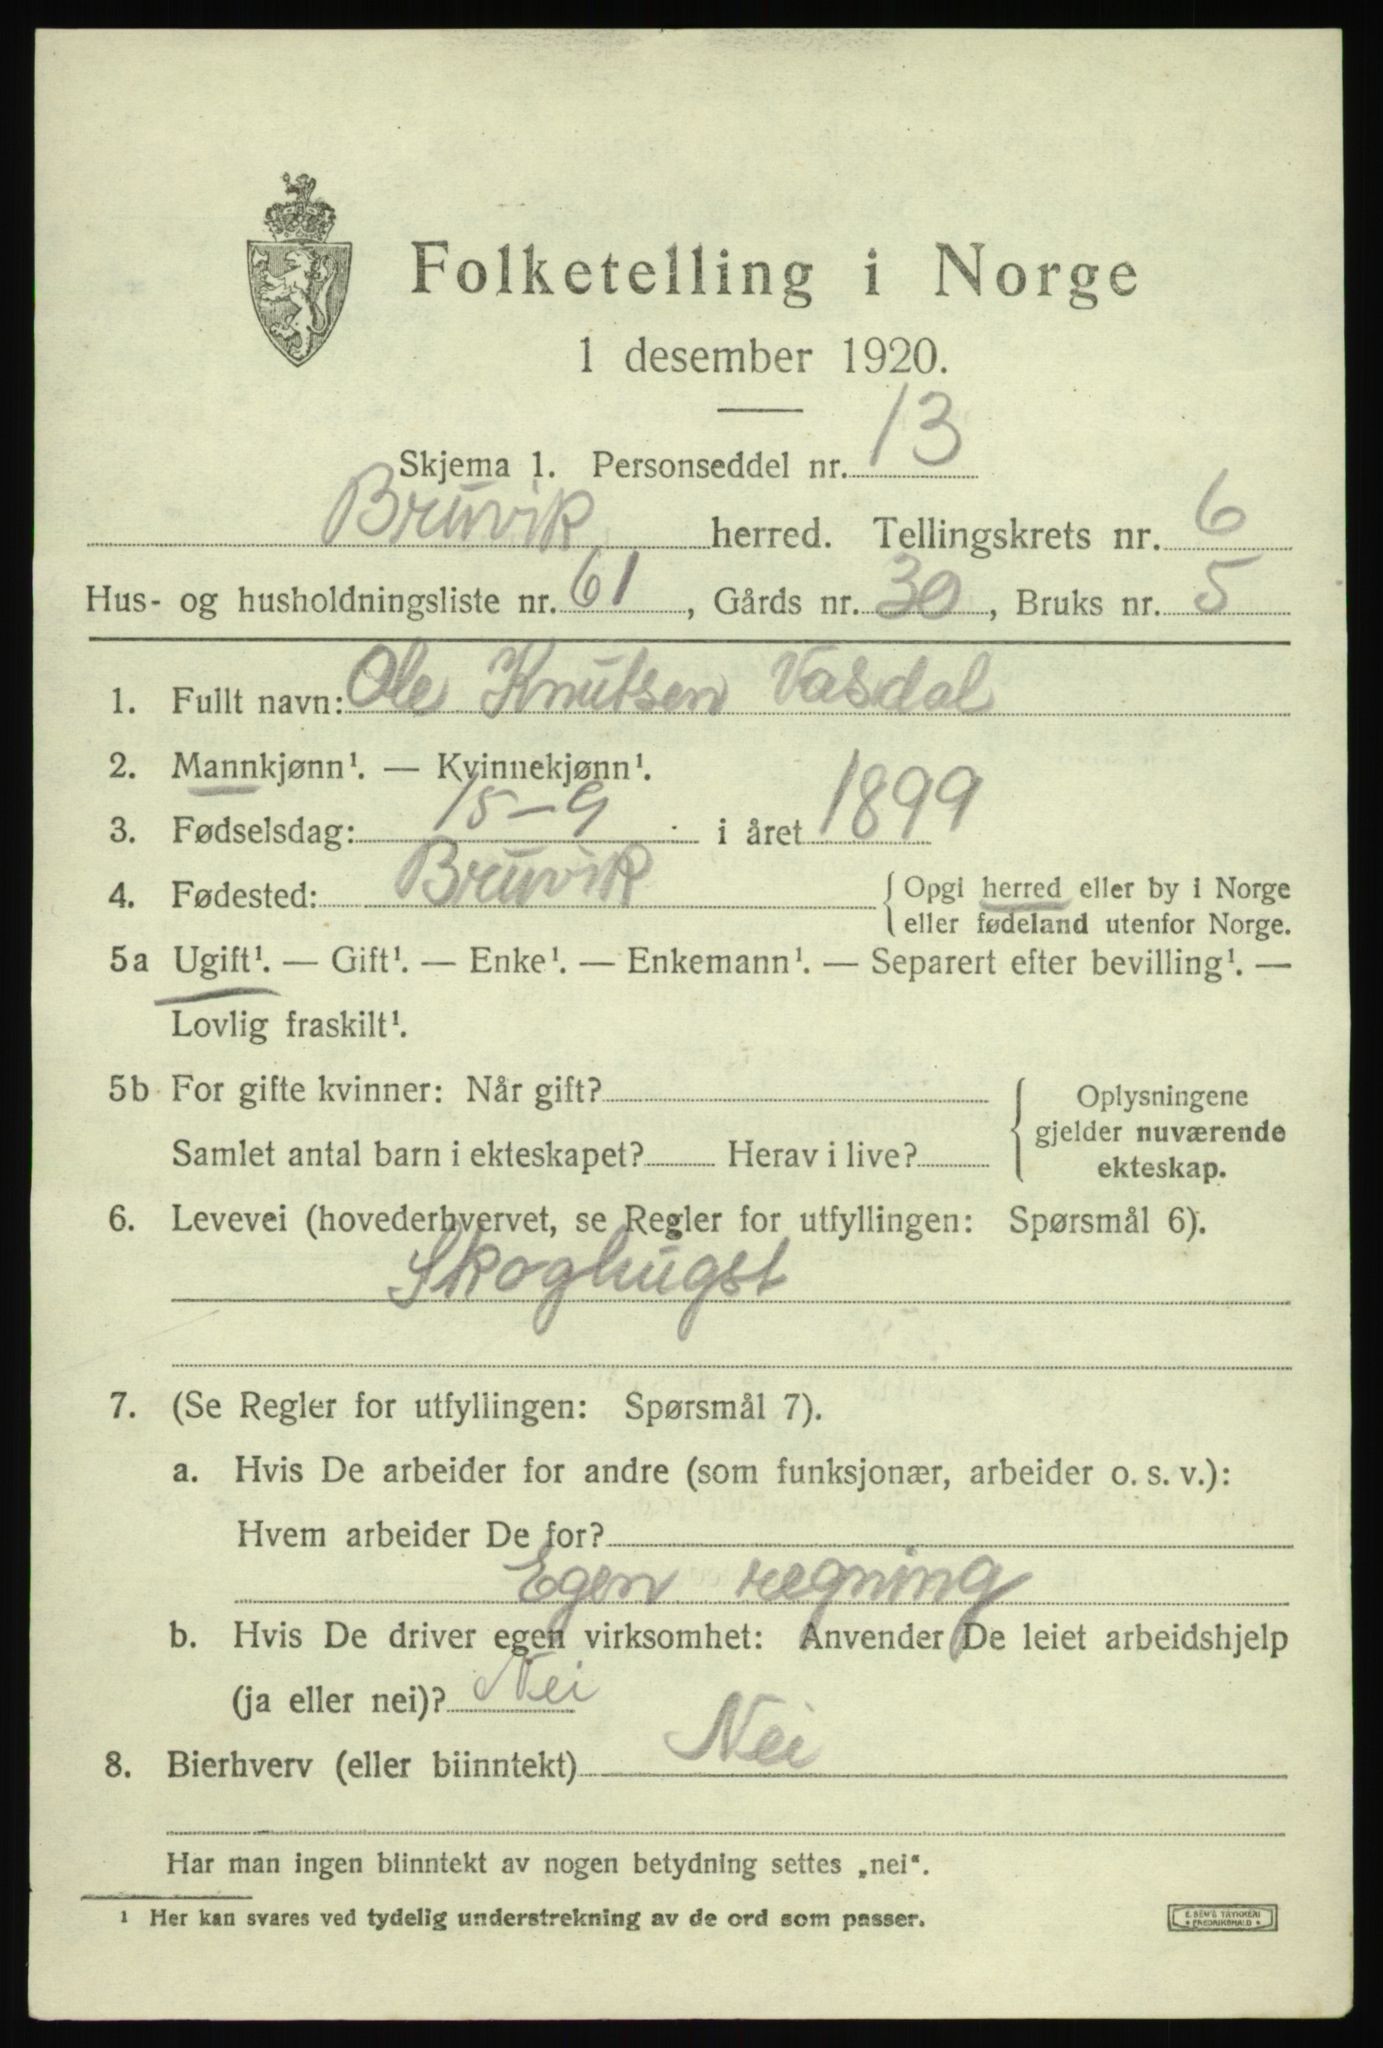 Folketelling i Norge
1 desember 1920.
Skjema 1. Personseddel nr. 13
Bruvik herred. Tellingskrets nr. 6
Hus- og husholdningsliste nr. 61, Gårds nr. 30, Bruks nr. 5
1. Fullt navn: Ole Knutsen Vasdal
2. Mannkjønn¹. — Kvinnekjønn¹.
3. Fødselsdag: 15-9 i året 1899
4. Fødested: Bruvik { Opgi herred eller by i Norge
eller fødeland utenfor Norge.
5a Ugift¹. — Gift¹. — Enke¹. — Enkemann¹. — Separert efter bevilling¹. —
Lovlig fraskilt¹.
5b For gifte kvinner: Når gift? { Oplysningene
gjelder nuværende
Samlet antal barn i ekteskapet? Herav i live? ekteskap.
6. Levevei (hovederhvervet, se Regler for utfyllingen: Spørsmål 6).
Skoghugst
7. (Se Regler for utfyllingen: Spørsmål 7).
a. Hvis De arbeider for andre (som funksjonær, arbeider o. s. v.):
Hvem arbeider De for?
Egen regning
b. Hvis De driver egen virksomhet: Anvender De leiet arbeidshjelp
(ja eller nei)? Nei
8. Bierhverv (eller biinntekt) Nei
Har man ingen biinntekt av nogen betydning settes „nei“.
¹ Her kan svares ved tydelig understrekning av de ord som passer.
E. SEM'S TRYKKERI
FREDRIKSHALD